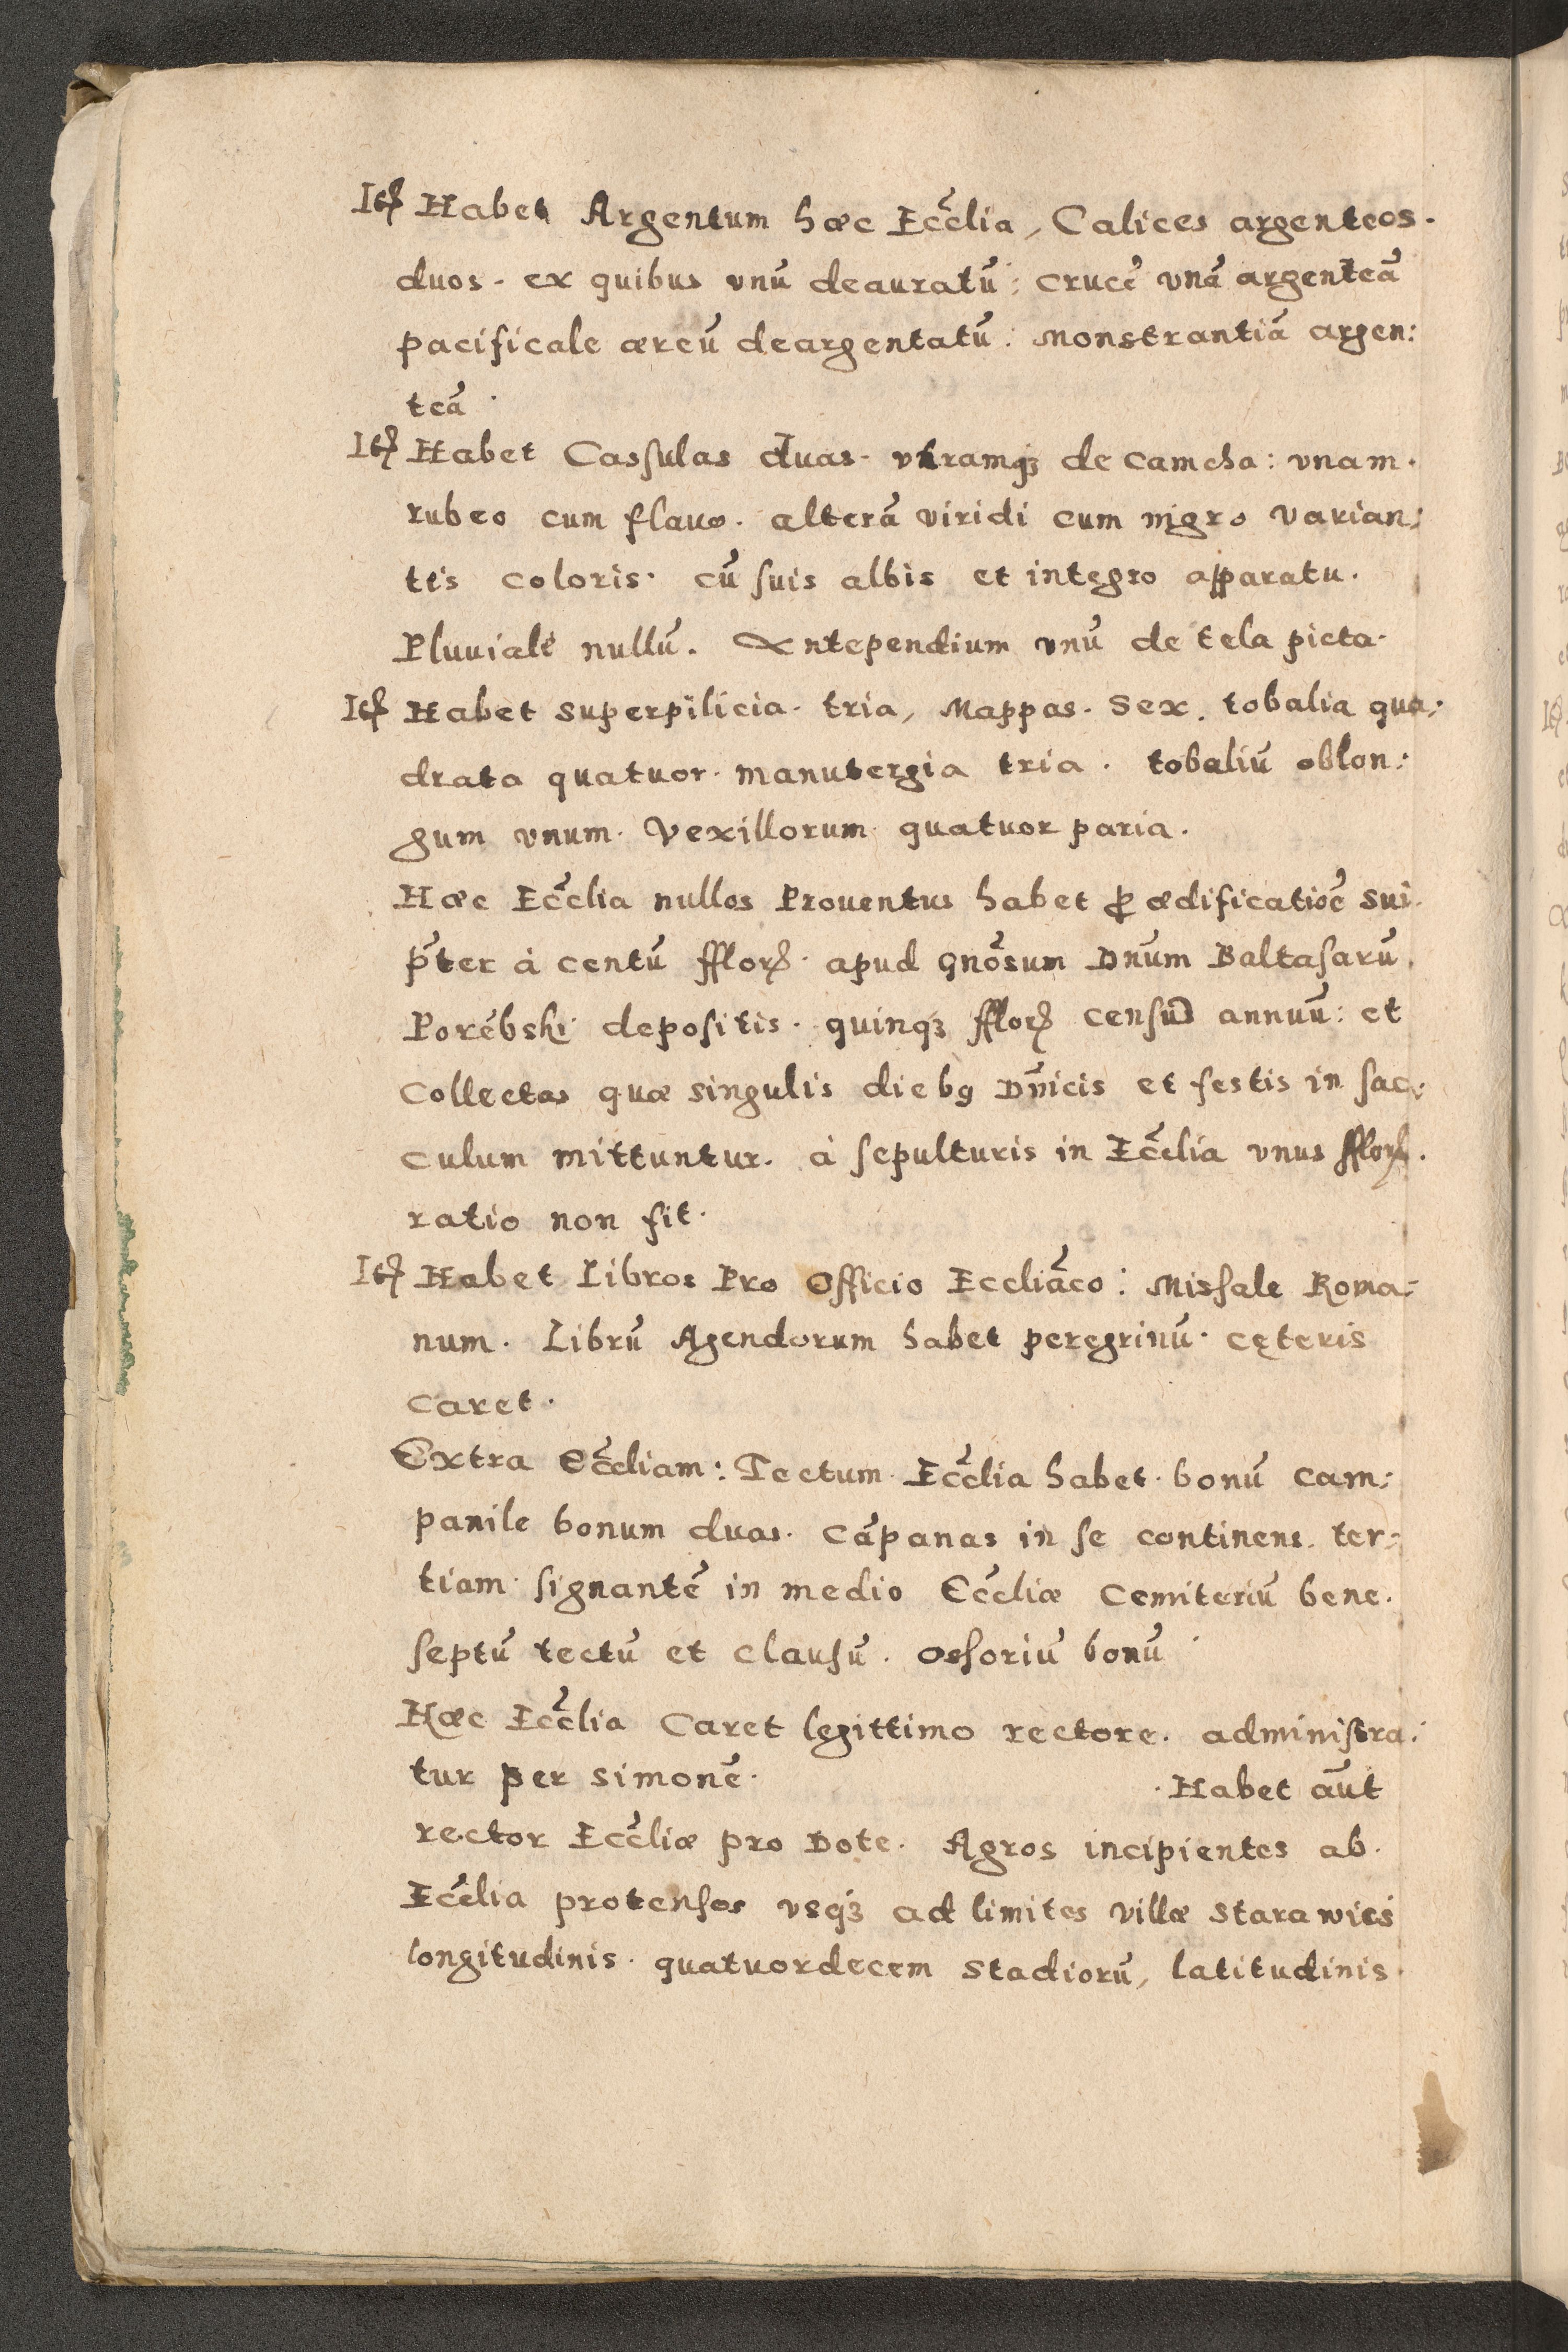 Itꝫ Habet Argentum hæc Eccl̃ia, Calices argenteos.
duos. ex quibus vnũ deauratũ: crucẽ vnã argenteã
pacificale æreũ deargentatũ: Monstrantiã argen:
teã.
Itꝫ Habet Casſulas duas. vtramqꝫ de camcha: vnam.
rubeo cum flauo. alterã viridi cum nigro varian:
tis coloris. cũ ſuis albis et integro apparatu.
Pluuiale nullũ. Antependium vnũ de tela picta.
Itꝫ Habet superpilicia. tria, Mappas. Sex. tobalia qua:
drata quatuor. manutergia tria. tobaliũ oblon:
gum vnum. Vexillorum quatuor paria.
Hæc Eccl̃ia nullos Prouentus habet ꝓ ædificatiõe sui.
p̃ter à centũ fflorꝫ. apud gnõsum Dñum Baltaſarũ.
Porębski depoſitis. quinqꝫ fflorꝫ censũ annuũ: et
Collectas quæ singulis diebꝰ Dñicis et feſtis in ſac:
culum mittuntur. à ſepulturis in Eccl̃ia vnus fflorꝫ.
ratio non fit.
Itꝫ Habet Libros Pro Officio Eccliãco: Misſale Roma:
num. Librũ Agendorum habet peregrinũ. cęteris
caret.
Extra Eccl̃iam: Tectum Eccl̃ia habet. bonũ cam:
panile bonum duas. cãpanas in ſe continens. ter:
tiam ſignantẽ in medio Eccl̃iæ Cemiteriũ bene.
ſeptũ tectũ et clauſũ. Osſoriũ bonũ.
Hæc Eccl̃ia Caret legittimo rectore. adminiſtra:
tur per simonẽ. . Habet aũt
rector Eccl̃iæ pro Dote. Agros incipientes ab.
Eccl̃ia protenſos vsqꝫ ad limites villæ Starawieś
longitudinis. quatuordecem stadiorũ, latitudinis.